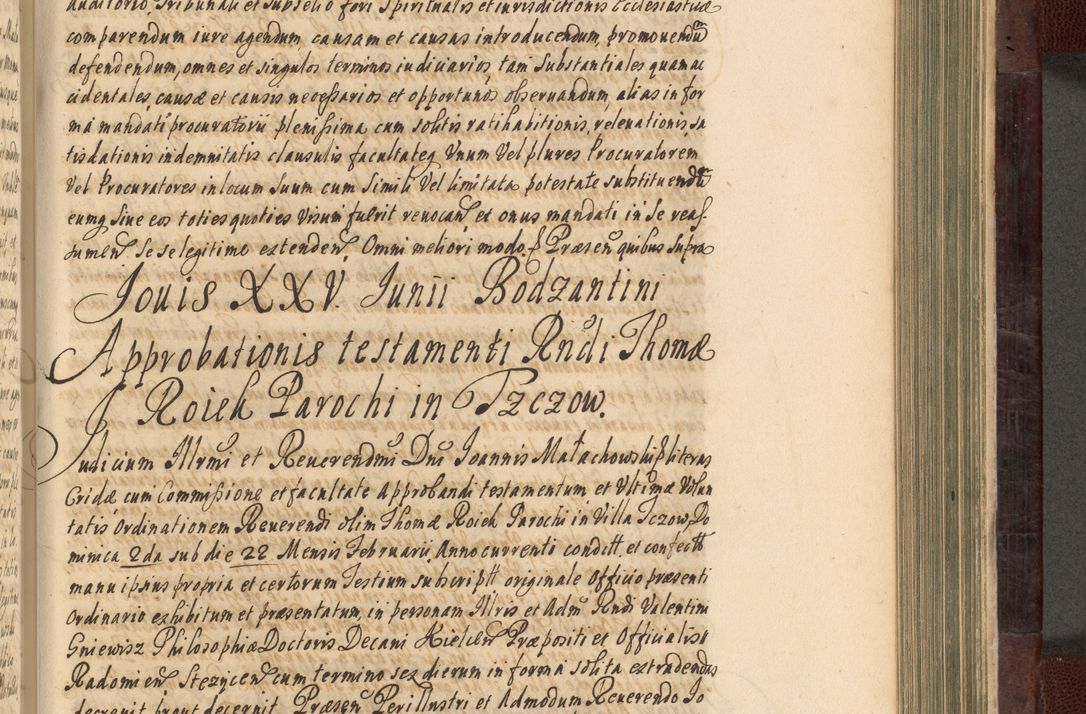 auditorio Tribunali et subselio fori spiritualis et iurisdictionis Ecclesiasticæ
comparendum iure agendum, causam et causas introducendum, promouendũ
defendendum, omnes et singulos terminos iudiciarios, tam substantiales quam ac
cidentales, causæ et causis necessarios et opportunos obseruandum, alias in for
ma mandati procuratorii plenissima cum solitis ratihabitionis, releuationis sa
tisdationis indemnitatis clausulis facultateq Vnum Vel plures Procuratorem
Vel Procuratores in locum suum cum simili Vel limitata potestate substituendũ
eumq siue eos toties quoties Visum fuerit reuocan et onus mandati in se reas
sumen se se legitime extenden. Omni meliori modo. Præsen quibus supra
Jouis XXV. Junii Bodzantini
Approbationis testamenti Rndi Thomæ
Roiek Parochi in Tzczow.
Judicium Illrmi et Reuerendmi Dni Joannis Małachowski literas
Cridæ cum Commissione et facultate Approbandi testamentum et Vltimæ Volun
tatis Ordinationem Reuerendi olim Thomæ Roiek Parochi in Villa Tczow, Do
minica 2da sub die 22 Mensis Februarii Anno currenti conditt. et confectt
manu ipsius propria et certorum Testium subscriptt originale Officio præsenti
Ordinario exhibitum et præsentatum, in personam Illris et Adm Rndi Valentini
Gniewisz Philosophiæ Doctoris Decani Kielcen Præpositi et Officialis
Radomien Stezycen cum termino sex dierum in forma solita extradendas
decreuit prout decernit. Præsen Perillustri et Admodum Reuerendo Jo